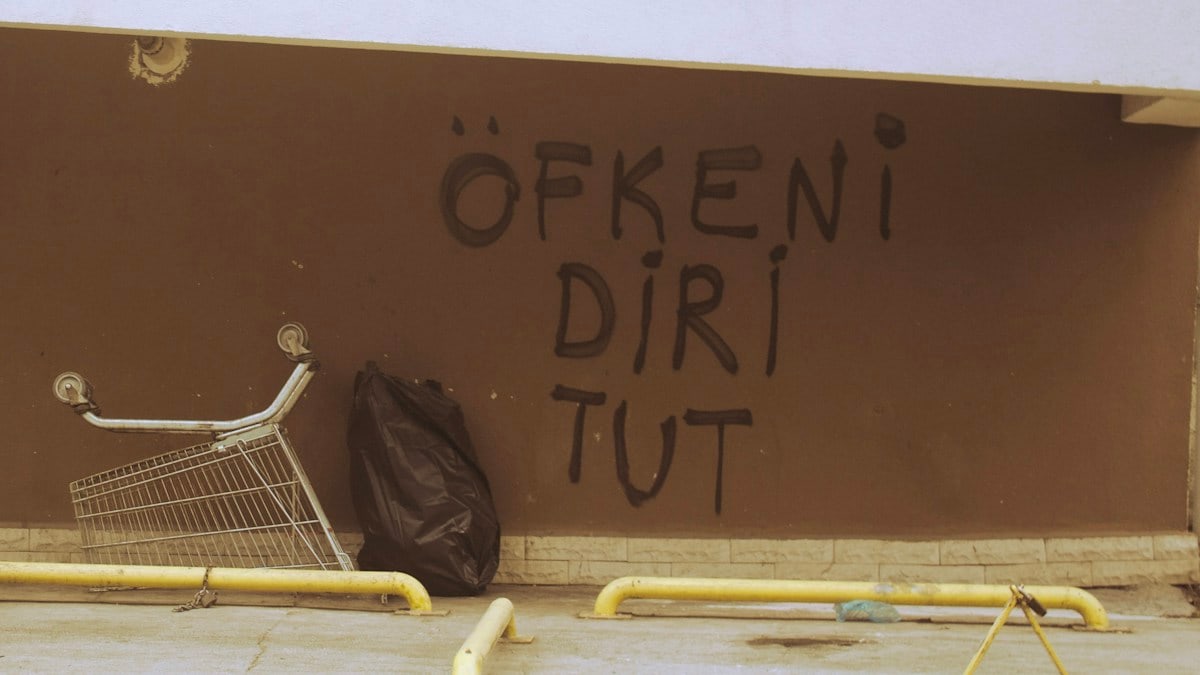 ÖFKENİ
DİRİ
TUT